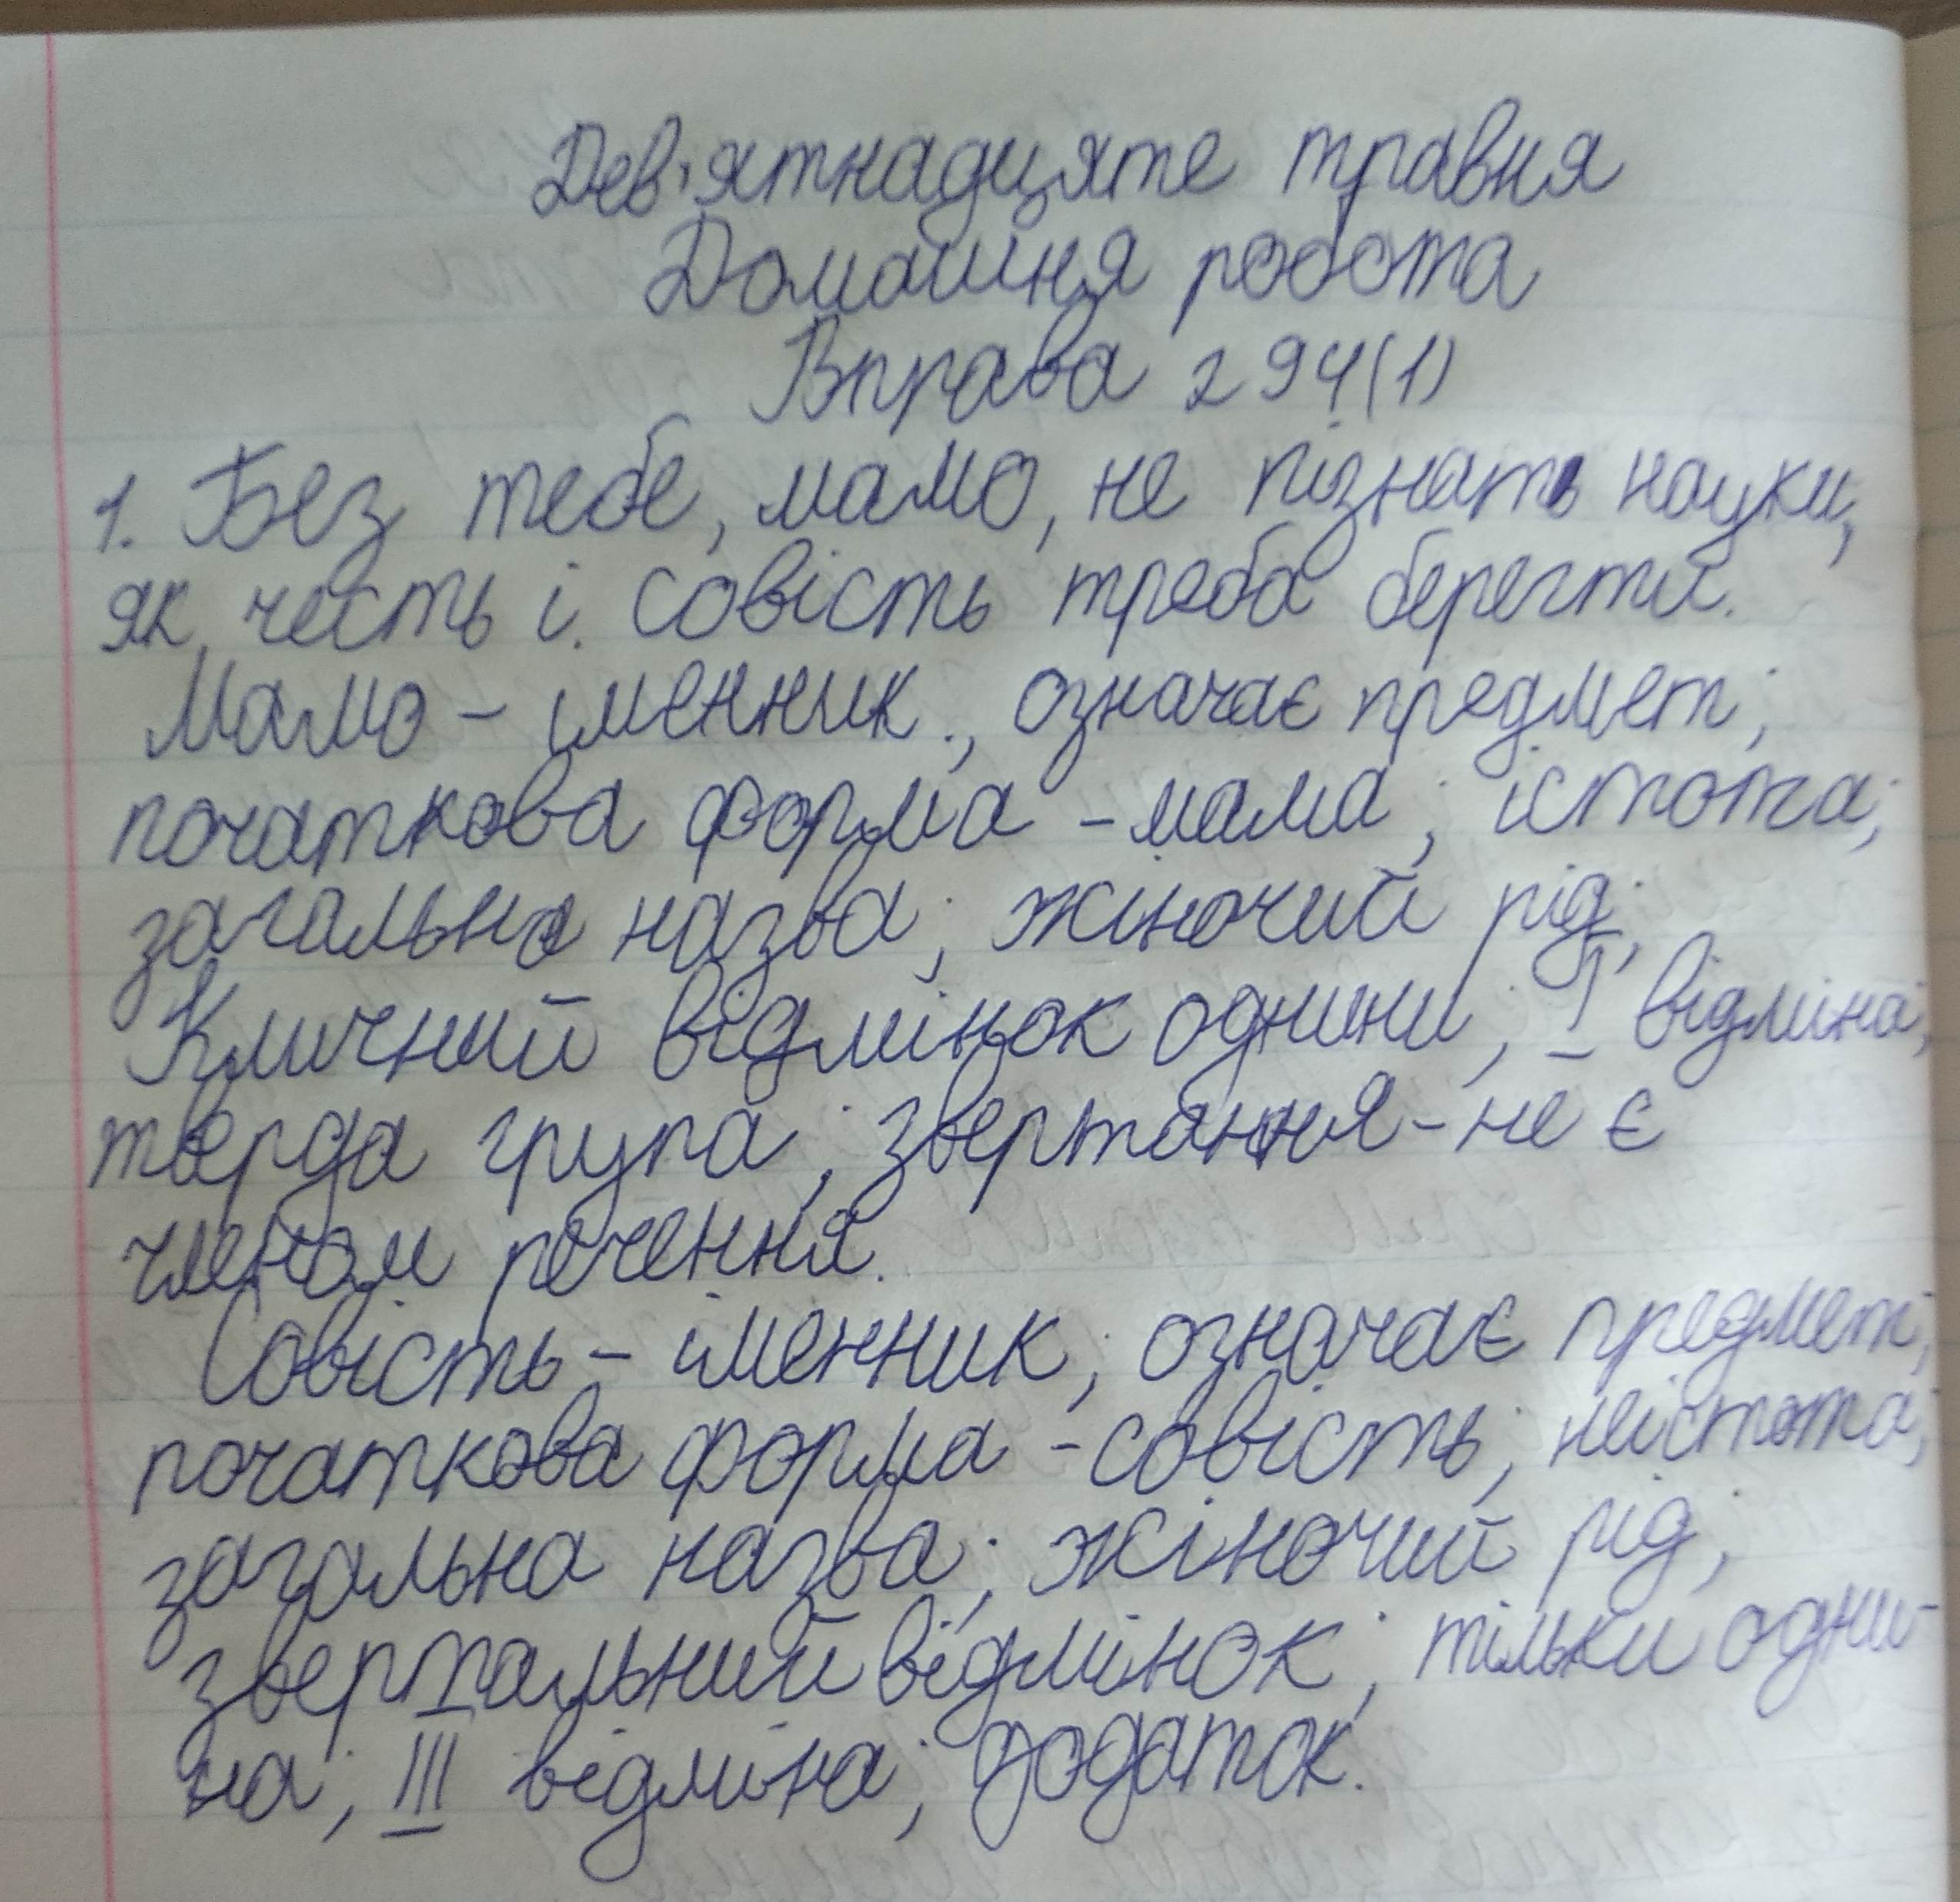 Дев'ятнадцяте травня
Домашня робота
Вправа 294(1)
1. Без тебе, мамо, не пізнать науки,
як честь і совість треба берегти.
Мамо - іменник, означає предмет;
початкова форма - мама; істота;
загальна назва; жіночий рід;
Кличний відмінок однини; I відміна;
тверда група; звертання - не є
членом речення.
Совість - іменник; означає предмет;
початкова форма - совість; неістота;
загальна назва; жіночий рід;
звертальний відмінок; тільки одни-
на; III відміна; додаток.